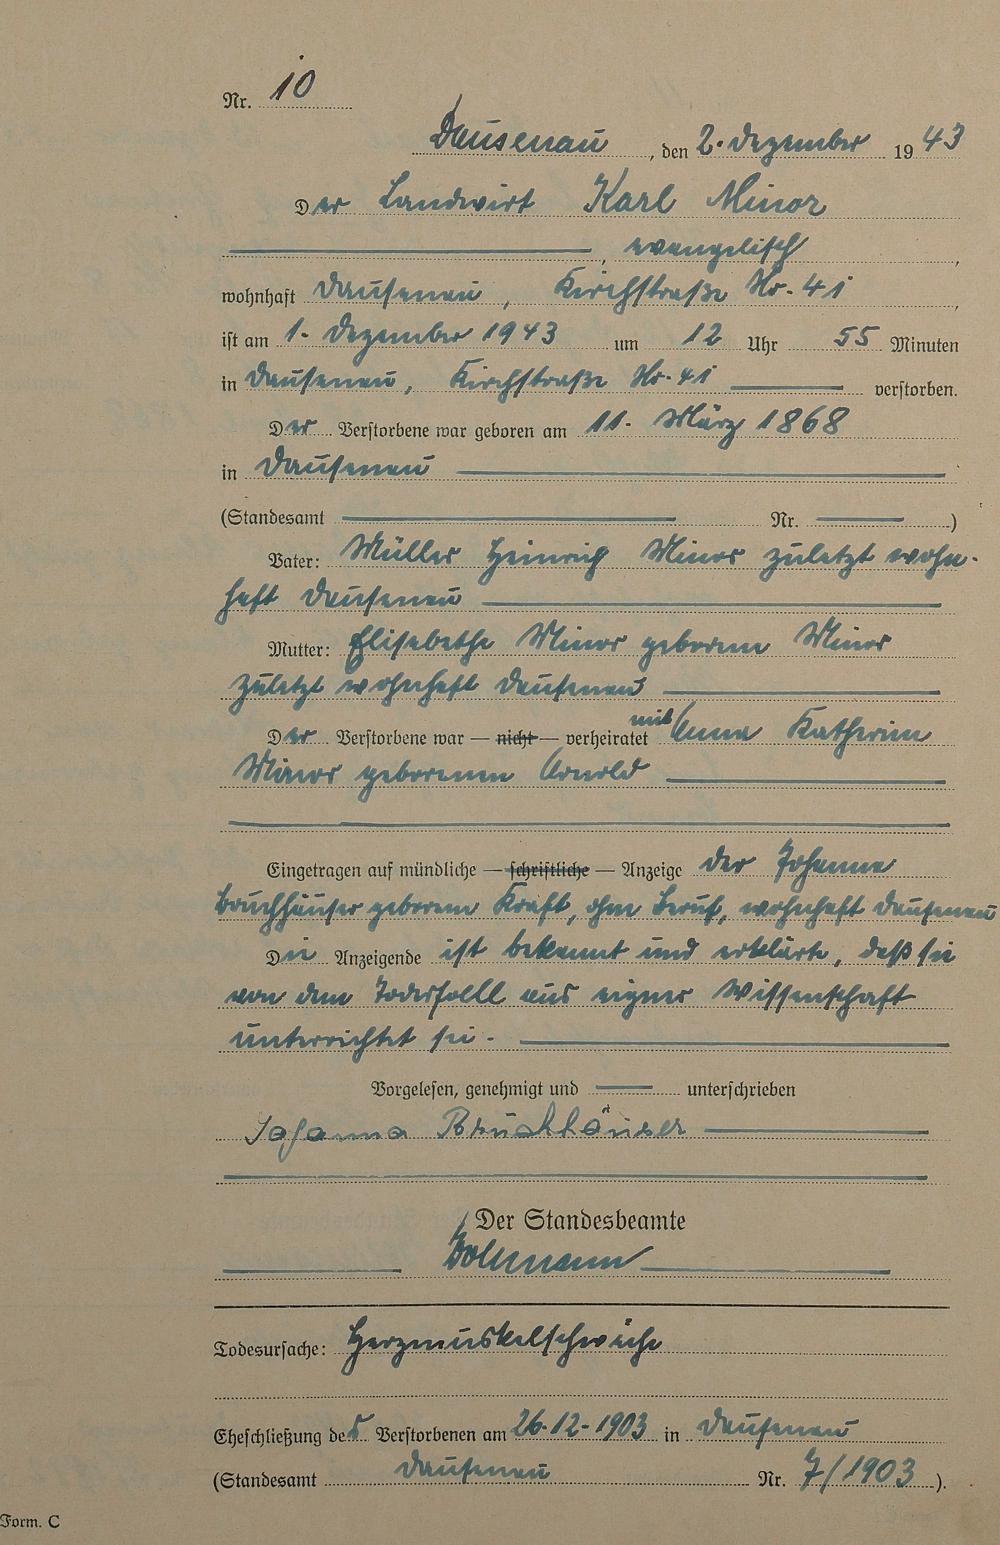 Nr. 10
Dausenau, den 2. Dezember 1943
Der Landwirt Karl Minor
, evangelisch,
wohnhaft Dausenau, Kirchstraße Nr. 41,
ist am 1. Dezember 1943 um 12 Uhr 55 Minuten
in Dausenau, Kirchstraße Nr. 41 verstorben.
Der Verstorbene war geboren am 11. März 1868
in Dausenau
(Standesamt Nr. )
Vater: Müller Heinrich Minor zuletzt wohn-
haft Dausenau
Mutter: Elisabethe Minor geborene Minor
zuletzt wohnhaft Dausenau
Der Verstorbene war — nicht — verheiratet mit Anna Katharina
Minor geborenen Arnold
Eingetragen auf mündliche — schriftliche — Anzeige der Johanna
Bruchhäuser geborene Kraft, ohne Beruf, wohnhaft Dausenau
Die Anzeigende ist bekannt und erklärte, daß sie
von dem Todesfalll aus eigner Wissenschaft
unterrichtet sei.
Vorgelesen, genehmigt und unterschrieben
Johanna Bruchhäuser
Der Standesbeamte
Todesursache: Herzmuskelschwäche
Eheschließung des Verstorbenen am 26.12.1903 in Dausenau
(Standesamt Dausenau Nr. 7/1903).
Form. C